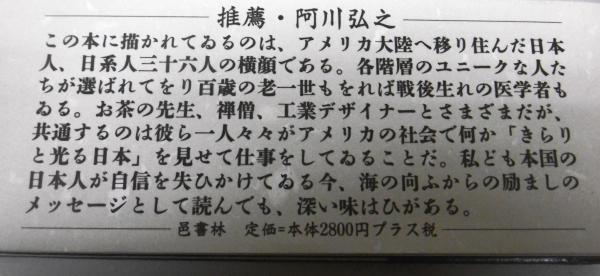 推薦・阿川弘之
この本に描かれてゐるのは、アメリカ大陸へ移り住んだ日本
人、日系人三十六人の横顔である。各階層のユニークな人た
ちが選ばれてをり百歳の老一世もをれば戦後生れの医学者も
ゐる。お茶の先生、禅僧、工業デザイナーとさまざまだが、
共通するのは彼ら一人々々がアメリカの社会で何か「きらり
と光る日本」を見せて仕事をしてゐることだ。私ども本国の
日本人が自信を失ひかけてゐる今、海の向ふからの励ましの
メッセージとして読んでも、深い味はひがある。
邑書林 定価=本体2800円プラス税